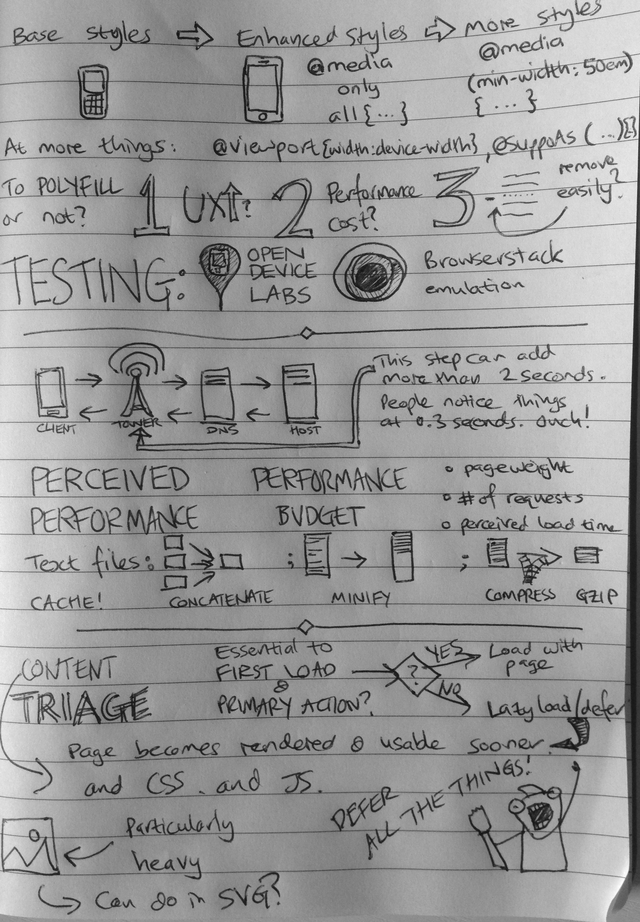 Base styles ⇨ Enhanced Styles ⇨ More styles
@media only all {...}
@media (min-width: 50em) {...}
At more things: @viewport{width:device-width}, @supports (...){}
To POLYFILL or not?
1 UX↑? 2 Performance cost? 3 remove easily?
TESTING: OPEN DEVICE LABS
Browserstack emulation
CLIENT TOWER DNS HOST
This step can add
more than 2 seconds.
People notice things
at 0.3 seconds. Ouch!
PERCEIVED PERFORMANCE
PERFORMANCE BUDGET
o pageweight
o # of requests
o perceived load time
Text files: ; → ;
CACHE! CONCATENATE MINIFY COMPRESS GZIP
CONTENT TRIAGE
Essential to
FIRST LOAD
&
PRIMARY ACTION?
?
YES Load with page
NO Lazyload/defer
Page becomes rendered & usable sooner.
and CSS. and JS.
DEFER
ALL THE THINGS!
Particularly
heavy
Can do in SVG?